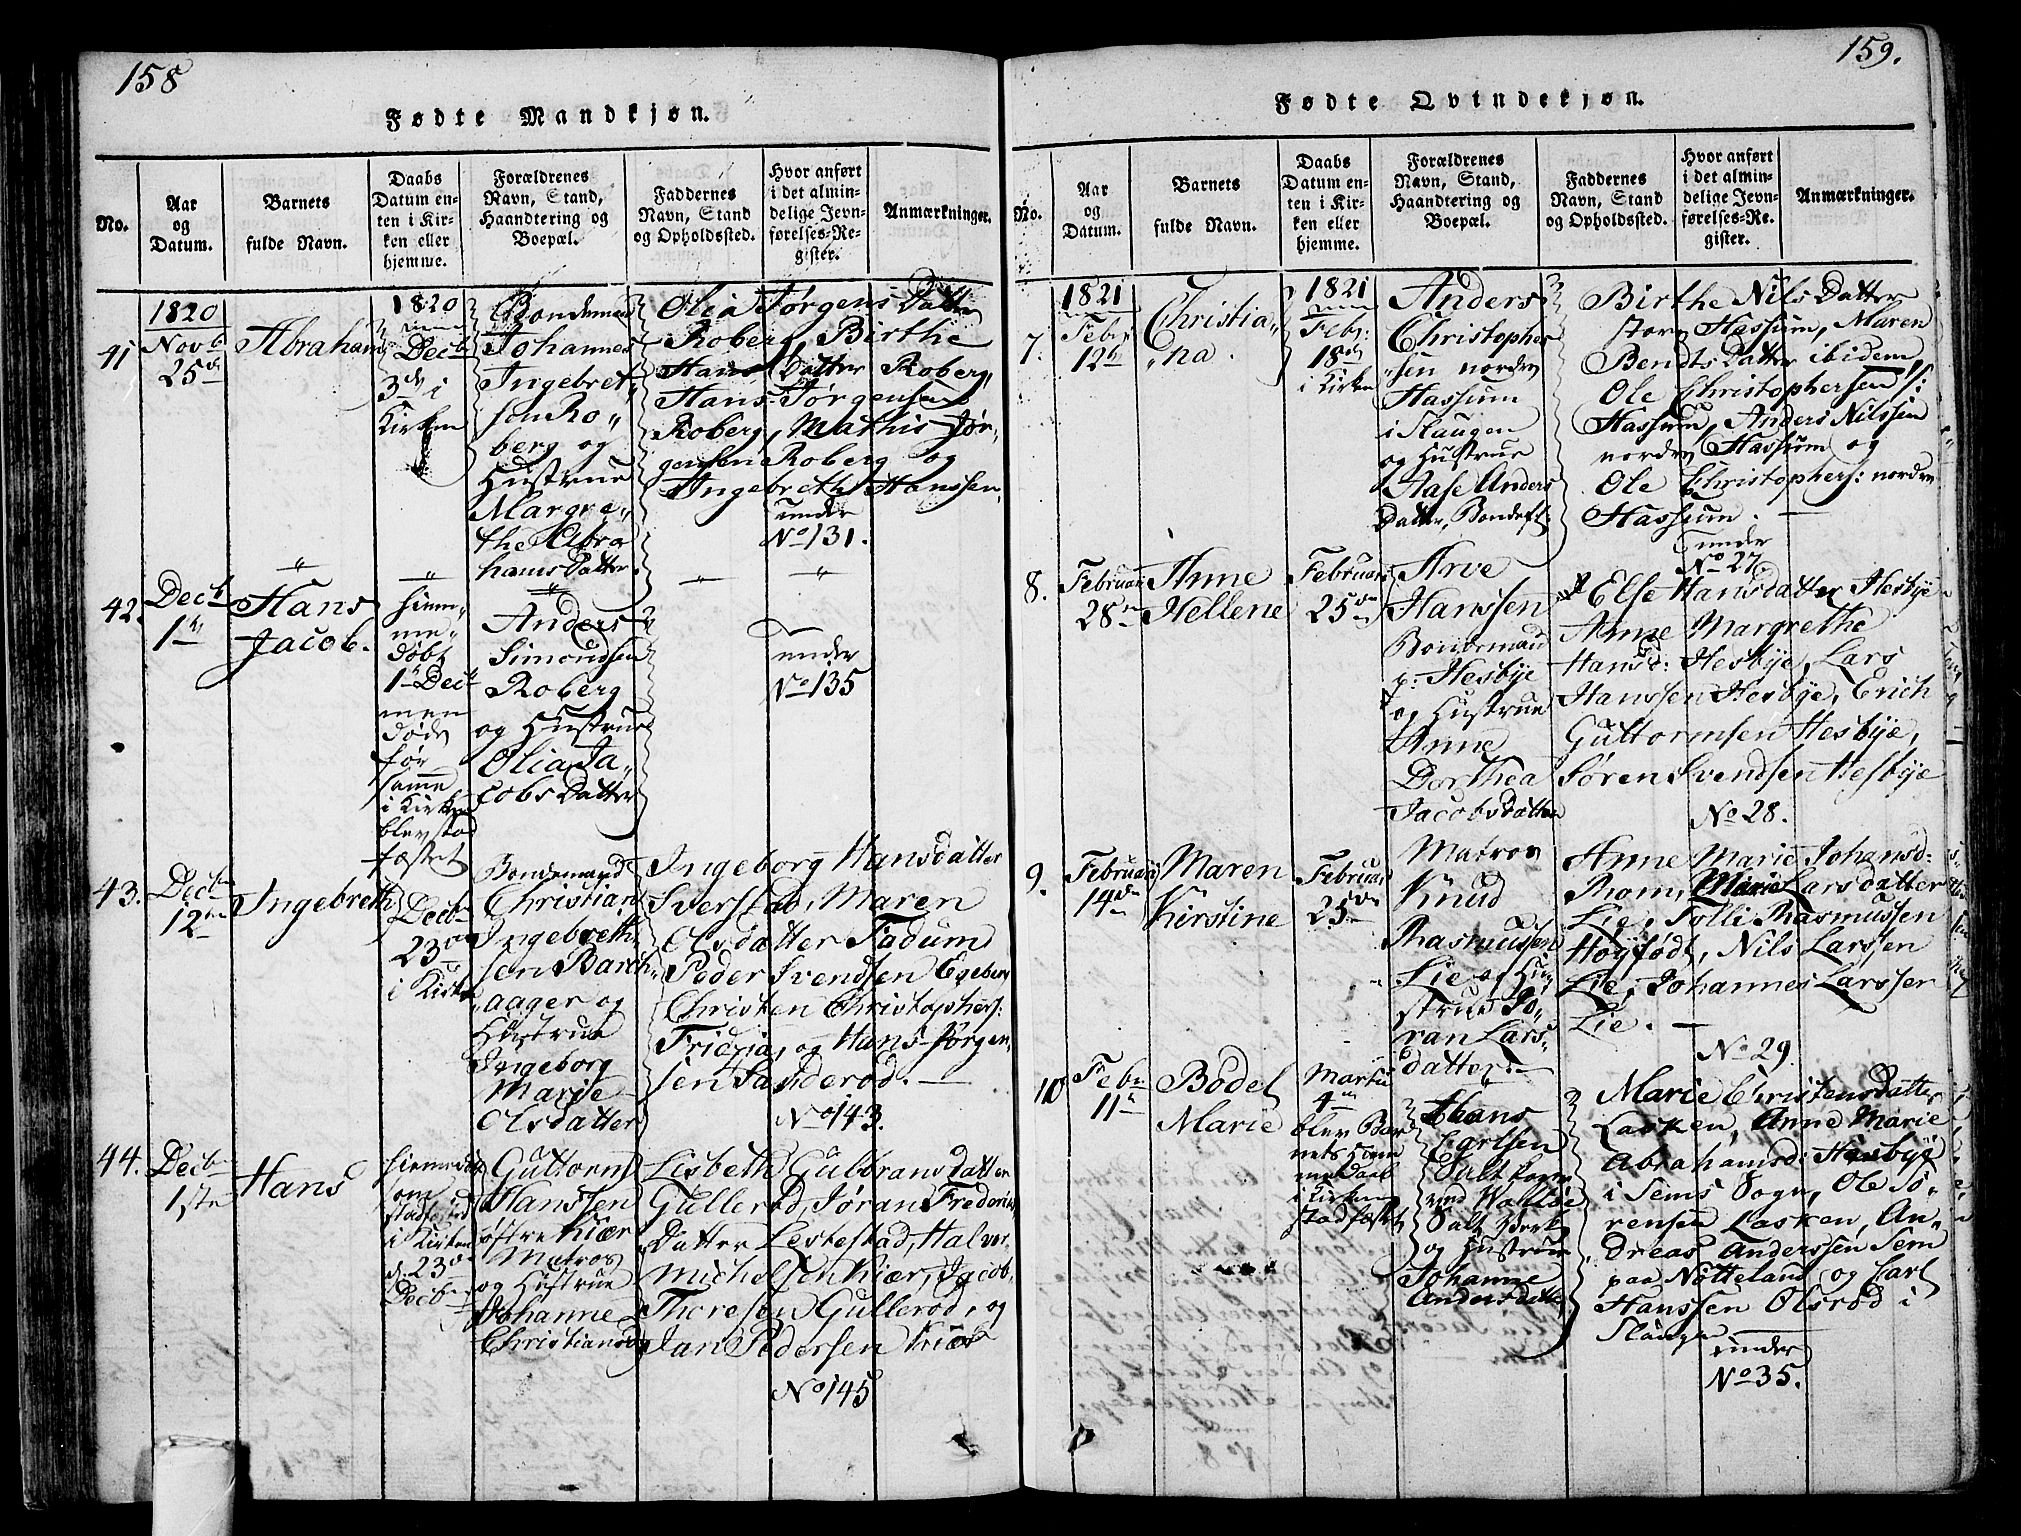 158
Fødte Mandkjøn.
No.
Aar
og
Datum.
Barnets
fulde Navn.
Daabs
Datum en-
ten i Kir-
ken eller
hjemme.
Forældrenes
Navn, Stand,
Haandtering og
Boepæl.
Faddernes
Navn, Stand
og Opholdssted.
Hvor anført
i det almin-
delige Jevn-
førelses-Re-
gister.
Anmærkninger.
41
1820
Novb
25de
Abraham
1820
Decb
3de i
Kirken
Bondemand
Johannes
Ingebret-
sen Ro-
berg og
Hustrue
Margre-
the Abra
hams Datter
Olia Jørgens Datter
Roberg, Birthe
Hans Datter Roberg,
Hans Jørgensen
Roberg, Mathis Jør-
gensen Roberg og
Ingebreth Hanssen
under
No 131.
42.
Decb
1te
Hans
Jacob.
hiem-
me-
døbt
1te Decb
men
døde
før
samme
i Kirken
blev stad
fæstet
Anders
Simondsen
Roberg
og Hustrue
Olia Ja-
cobs Datter
under
No 135
43.
Decb
12te
Ingebreth
Decb
23de
i Kirken
Bondemand
Christian
Ingebreth-
sen Barch-
aager og
Hustrue
Ingeborg
Marie
Olsdatter
Ingeborg Hansdatter
Sverstad, Maren
Olsdatter Fadum
Peder Svendsen Egeberg
Christen Christophers:
Tridzia, og Hans Jørgen-
sen Sanderød.
No 143.
44.
Decb
1ste
Hans
hiemedøbt
som
stadfæsted
i Kirken
d. 23de
Decb
Guttorm
Hanssen
østre Kiær
Matros
og Hustrue
Johanne
Christiansd
Lisbeth Gulbrans Datter
Gullerød, Jøran Frederichs
Datter Lestestad, Halvor
Michelsen Kiær, Jacob
Thoresen Gullerød, og
Jan Pedersen Kiær
No 145
159.
Fødte Qvindekjøn.
No.
Aar
og
Datum.
Barnets
fulde Navn.
Daabs
Datum en-
ten i Kir-
ken eller
hjemme.
Forældrenes
Navn, Stand,
Haandtering og
Boepæl.
Faddernes
Navn, Stand
og Opholdssted.
Hvor anført
i det almin-
delige Jevn-
førelses-Re-
gister.
Anmærkninger.
7.
1821
Febr
12te
Christia-
na.
1821
Febr:
18de
i Kirken
Anders
Christopher
sen nordre
Hassum
i Slaugen
og Hustrue
Aase Anders
Datter, Bondeft:
Birthe Nils Datter
store Hassum, Maren
Bendts Datter ibidem,
Ole Christophersen s:
Hassum, Anders Nilssen
nordre Hassum og
Ole Christophers: nordre
Hassum.
under
No 27
8.
Februari
28de
Anne
Hellene
Februari
25de
Arve
Hanssen
Bondemand
p: Hesbye
og Hustrue
Anne
Dorthea
Jacobsdatter
Else Hansdatter Hesbye
Anne Margrethe
Hansd: Hesbye, Lars
Hanssen Hesbye, Erich
Guttormsen Hesbye,
Søren Svendsen Hesbye
No 28.
9.
Februari
14de
Maren
Kirstine
Februar
25de
Matros
Knud
Rasmussen
Lie og Hu-
strue Jø-
ran Lars-
datter
Anne Marie Johansd:
Rom, Marie Larsdatter
Lie, Tolli Rasmussen
Høyfødt, Nils Larssen
Lie, Johannes Larssen
Lie.
No 29.
10
Febr
11te
Bodel
Marie
Martii
4de
blev Bar
nets Hiem
medaab
i Kirken
stadfæstet
Hans
Carlsen
ved Walløe
Salt Værk
og Hustrue
Johanne
Andersdatter
Marie Christensdatter
Lasken, Anne Marie
Abrahamsd: Hesbye
i Sems Sogn, Ole Sø-
rensen Lasken, An-
dreas Anderssen Sem
paa Nøtteland og Carl
Hanssen Olsrød i
Slaugen
under
No 35.